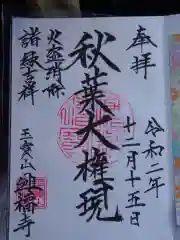 奉拝
令和二年
十二月十五日
秋葉大権現
火盗消除
諸縁吉祥
玉宝山 興福寺